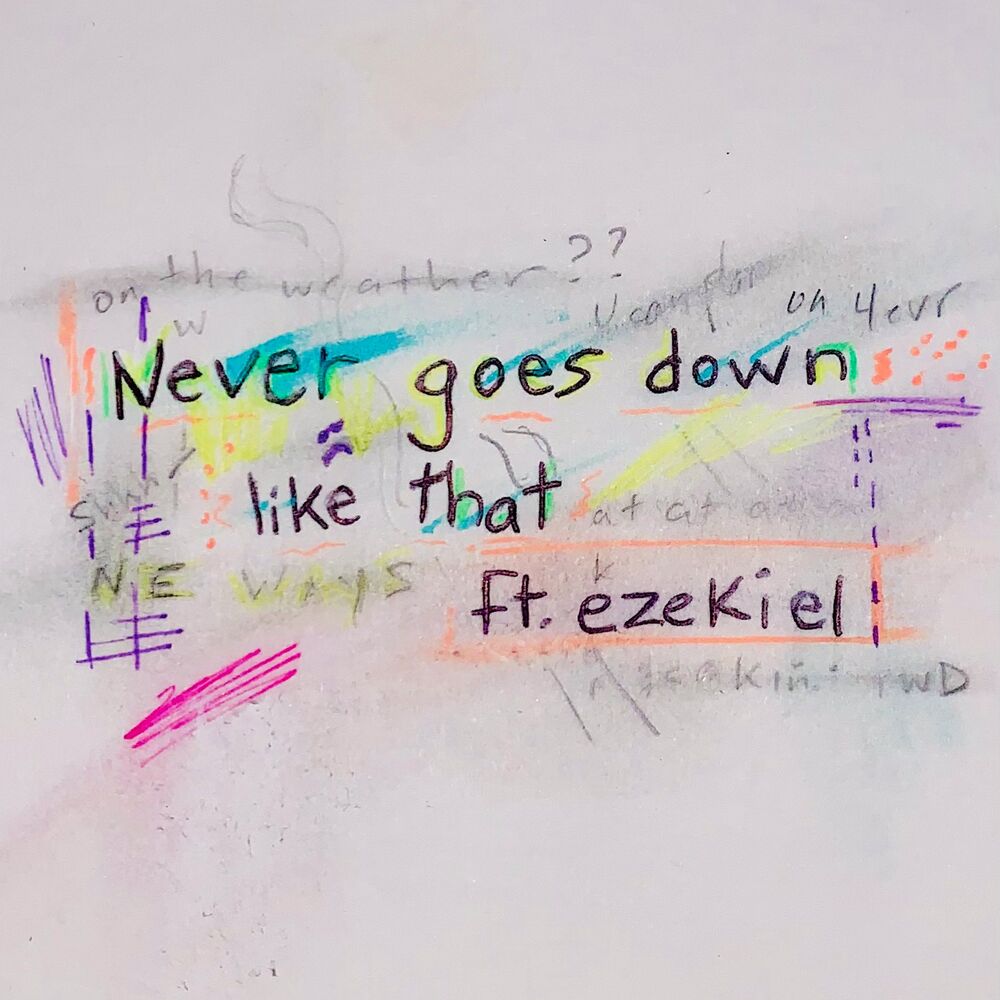 on the weather ??
on 4evr
Never goes down
like that
at at a
NE WAYS
ft. ezekiel